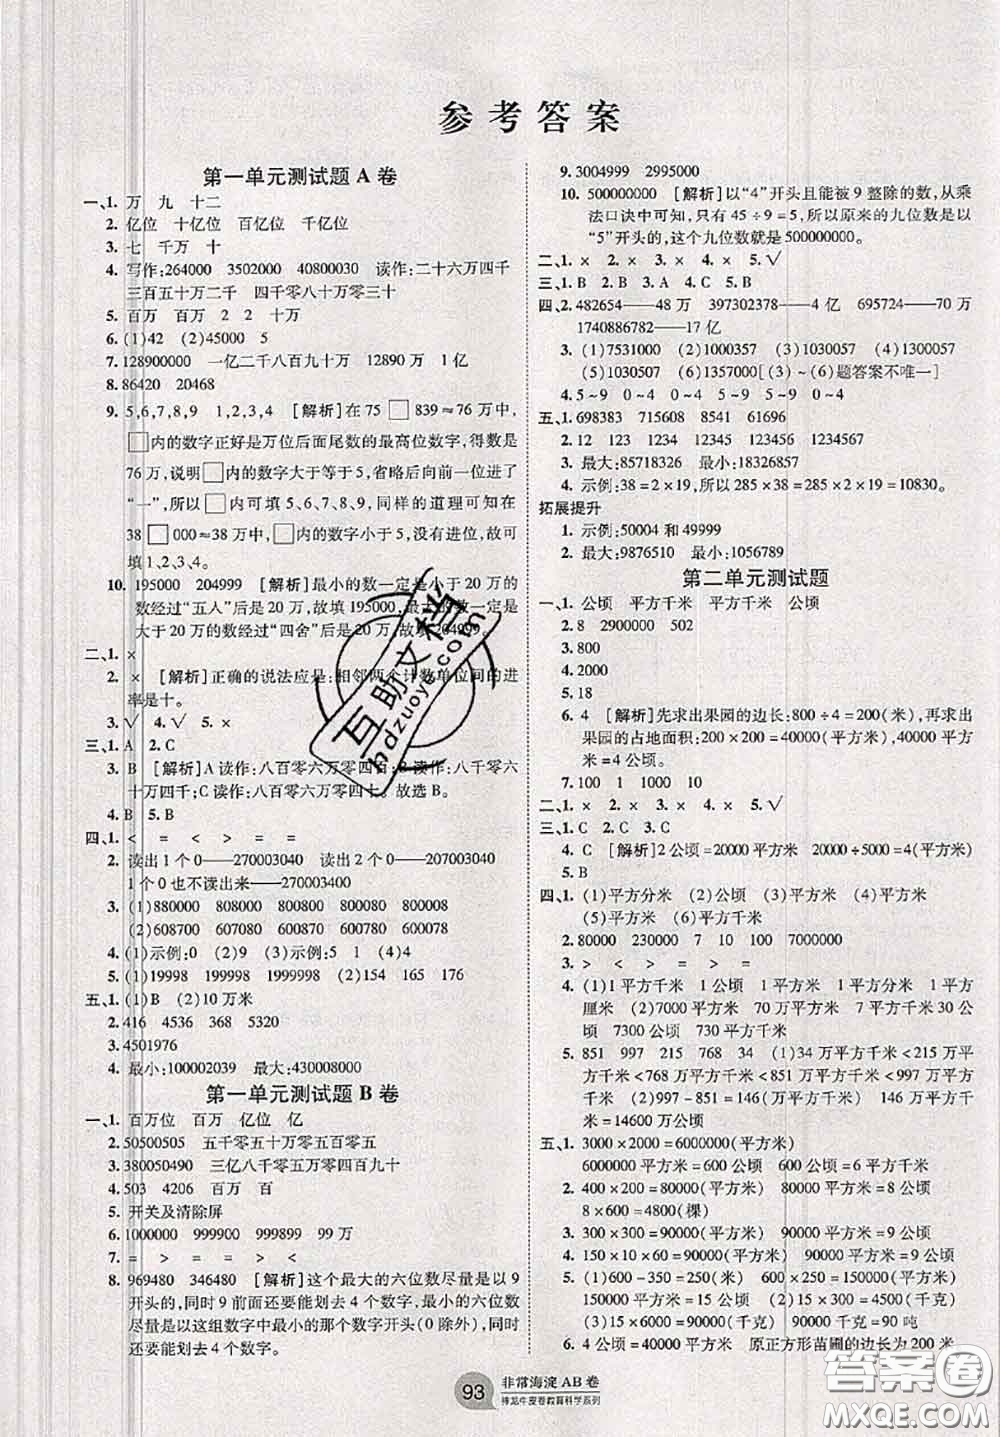 参考答案
第一单元测试题 A 卷
一、1. 万 九 十二
2. 亿位 十亿位 百亿位 千亿位
3. 七 千万 十
4. 写作:264000 3502000 40800030 读作:二十六万四千
三百五十万二千 四千零八十万零三十
5. 百万 百万 2 2 十万
6. (1)42 (2)45000 (3)5
7. 128900000 一亿二千八百九十万 12890 万 1 亿
8. 86420 20468
9. 5,6,7,8,9 1,2,3,4 [解析]在 75 □ 839≈76 万中,
□内的数字正好是万位后面尾数的最高位数字,要得数是
76 万,说明□内的数字大于等于 5,省略后向前一位进了
“一”,所以□内可填 5、6、7、8、9,同样的道理可知在
38 □ 000≈38 万中,□内的数字小于 5,没有进位,可
填 1、2、3、4。
10. 195000 204999 [解析]最小的数一定是小于 20 万的
数经过“五入”后是 20 万,故填 195000,最大的数一定是
大于 20 万的数经过“四舍”后是 20 万,故填 204999。
二、1. ×
2. × [解析]正确的说法应是:相邻两个计数单位间的进
率是十。
3. √ 4. √ 5. ×
三、1. A 2. C
3. B [解析]A 读作:八百零六万零四百;B 读作:八千零六
十万四千;C 读作:八百零六万零四十。故选 B。
4. B 5. B
四、1. < = < > = =
2. 读出 1 个 0——270003040 读出 2 个 0——207003040
1 个 0 也不读出来——270034000
3. (1)880000 808000 800800 800080 800008
(2)608700 607080 607800 680070 608070
4. (1)示例:0 (2)9 (3)示例:5 (4)4
5. (1)19998 199998 1999998 (2)154 165 176
五、1. (1)B (2)10 万米
2. 416 4536 368 5320
3. 4501976
4. 最小:100002039 最大:930000008
第一单元测试题 B 卷
一、1. 百万位 百万 亿位 亿
2. 50500505 五千零五十万零五百零五
3. 380050490 三亿八千零五万零四百九十
4. 503 4206 百万 百
5. 开关及清除屏
6. 1000000 9999000 999899 99 万
7. = > = > > <
8. 969480 346480 [解析]这个最大的六位数尽量是以 9
开头的,同时 9 前面还要能划去 4 个数字,最小的六位数
尽量是以这组数字中最小的那个数字开头(0 除外),同时
还要能划去 4 个数字。
9. 3004999 2995000
10. 500000000 [解析]以“4”开头且能被 9 整除的数,从乘
法口诀中可知,只有 45÷9=5,所以原来的九位数是以
“5”开头的,这个九位数就是 500000000。
二、1. × 2. × 3. × 4. × 5. √
三、1. B 2. B 3. A 4. C 5. B
四、2. 482654——48 万 397302378——4 亿 695724——70 万
1740886782——17 亿
3. (1)7531000 (2)1000357 (3)1030057 (4)1035007
(5)1030507 (6)1357000[(3)~(6)题答案不唯一]
4. 5~9 0~4 0~4 5~9 5~9 0~4
五、1. 698383 715608 8541 61696
2. 12 123 1234 12345 123456 1234567
3. 最大:85718326 最小:18326857
4. 示例:38=2×19,所以 285×38=285×2×19=10830。
拓展提升
1. 示例:50004 和 49999
2. 最大:9876510 最小:1056789
第二单元测试题
一、1. 公顷 平方千米 平方千米 公顷
2. 8 2900000 502
3. 800
4. 2000
5. 18
6. 4 [解析]先求出果园的边长:800÷4=200(米),再求出
果园的占地面积:200×200=40000(平方米),40000 平方
米=4 公顷。
7. 100 1 1000 100
二、1. × 2. × 3. × 4. × 5. √
三、1. C 2. C 3. C
4. C [解析]2 公顷=20000 平方米 20000÷5000=4(平方米)
5. B
四、1. (1)平方分米 (2)公顷 (3)平方千米 (4)平方米
(5)平方米 (6)平方千米
2. 80000 230000 7 10 100 7000000
3. > < > = > =
4. (1)1 平方千米 1 公顷 1 平方米 1 平方分米 1 平方
厘米 (2)7000 平方米 70 万平方米 7 平方千米 30 公
顷 7300 公顷 730 平方千米
5. 851 997 215 768 34 (1)34 万平方千米<215 万平
方千米<768 万平方千米<851 万平方千米<997 万平方
千米 (2)997-851=146(万平方千米) 146 万平方千
米=14600 万公顷
五、1. 3000×2000=6000000(平方米)
6000000 平方米=600 公顷 600 公顷=6 平方千米
2. 400×200=80000(平方米) 80000 平方米=8 公顷
8×600=4800(棵)
3. 300×300=90000(平方米) 90000 平方米=9 公顷
4. 150×10×60=90000(平方米) 90000 平方米=9 公顷
5. (1)600-350=250(米) 250×600=150000(平方米)
150000 平方米=15 公顷 (2)15×1000=15000(千克)
(3)15×6000=90000(千克) 90000 千克=90 吨
6. 4 公顷=40000 平方米 原正方形苗圃的边长为 200 米
93
非常海淀 AB 卷
神龙牛皮卷教育科学系列
互助文档
hdzuoye.com
答案圈
MXQE.COM